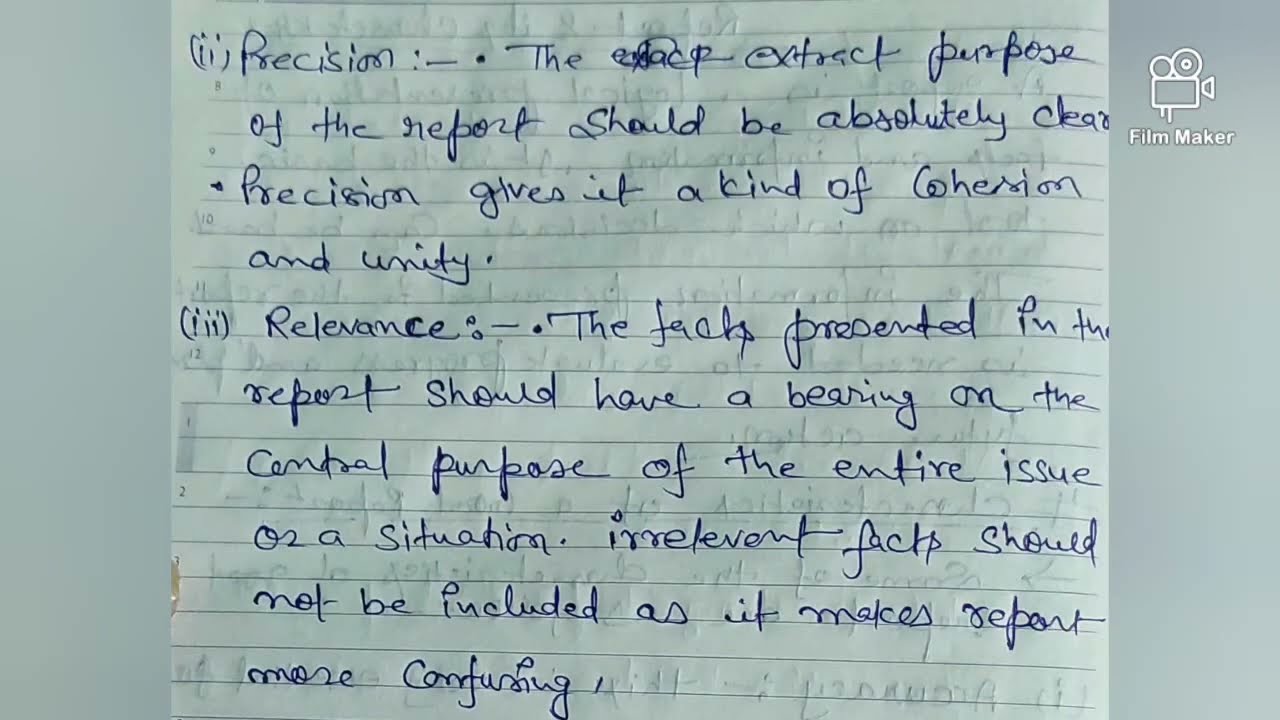 (ii) Precision :- • The extract purpose
of the report should be absolutely clear
• Precision gives it a kind of Cohesion
and unity.
(iii) Relevance :- • The facts presented in the
report should have a bearing on the
Central purpose of the entire issue
or a situation. irrelevent facts should
not be included as it makes report
more Confusing,
Film Maker
8
9
10
11
12
1
2
3